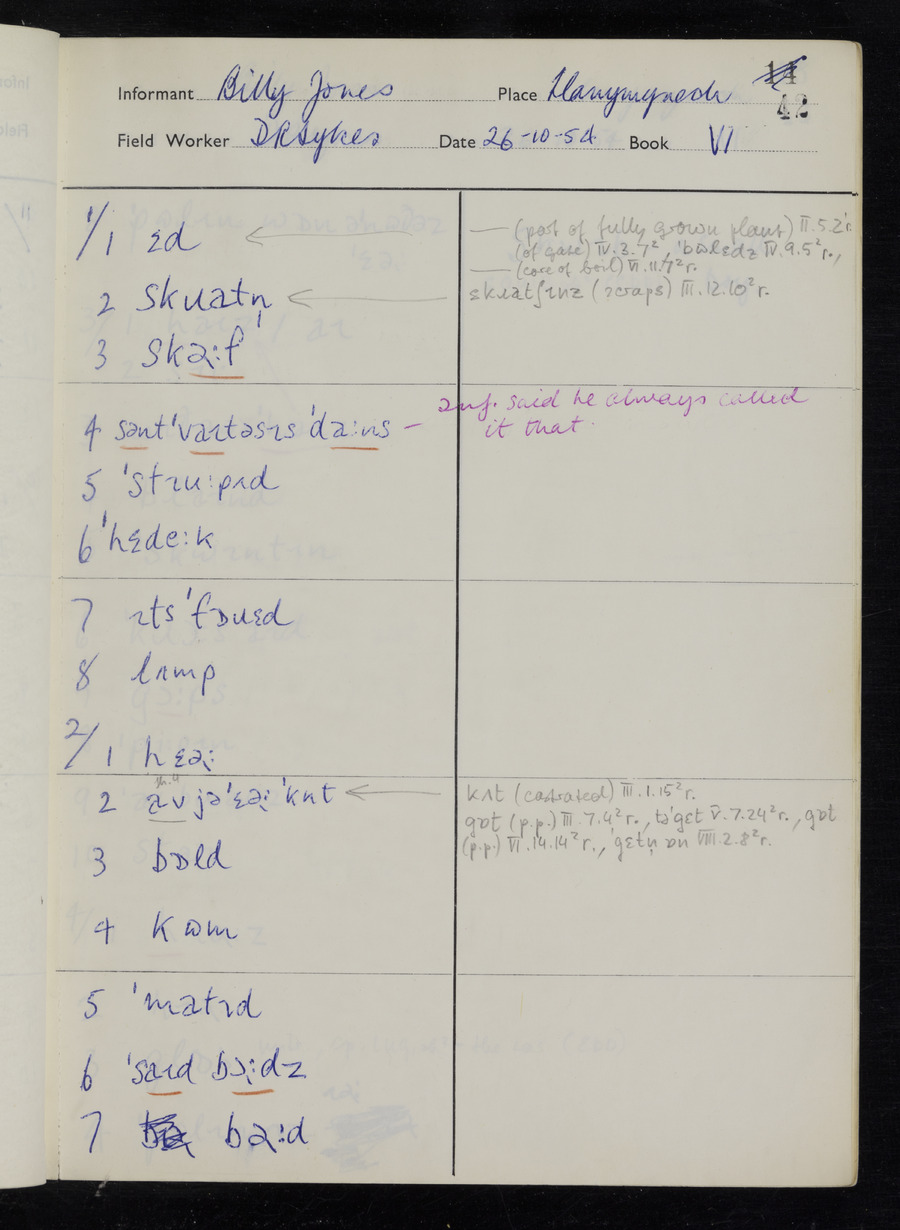 Informant Billy Jones Place Llanymynech 42
Field Worker DRSykes Date 26-10-54 Book VI
1/1 ɛd — (part of fully grown plant) II.5.2²r.
(of gate) IV.3.7², 'bɷlɛdz IV.9.5²r.,
— (core of boil) VI.11.7²r.
2 skɹatn̩ skɹatʃɪnz (scraps) III.12.10²r.
3 skəːf
4 sənt'vaɪtəsɪs'daːns — Inf. said he always called
it that.
5 'stɹuːpɪd
6 'hɛdeːk
7 ɪts 'fɒɹɛd
8 lɪmp
2/1 hɛəː
2 av jə'ɛəː 'kʌt kʌt (castrated) III.1.15²r.
gɒt (p.p.) III.7.4²r., tə'get V.7.24²r., gɒt
(p.p.) VI.14.14²r., 'gɛtn̩ ɒn VIII.2.8²r.
3 bɔld
4 kɷm
5 'matɪd
6 'saɪd bɔːdz
7 bəːd